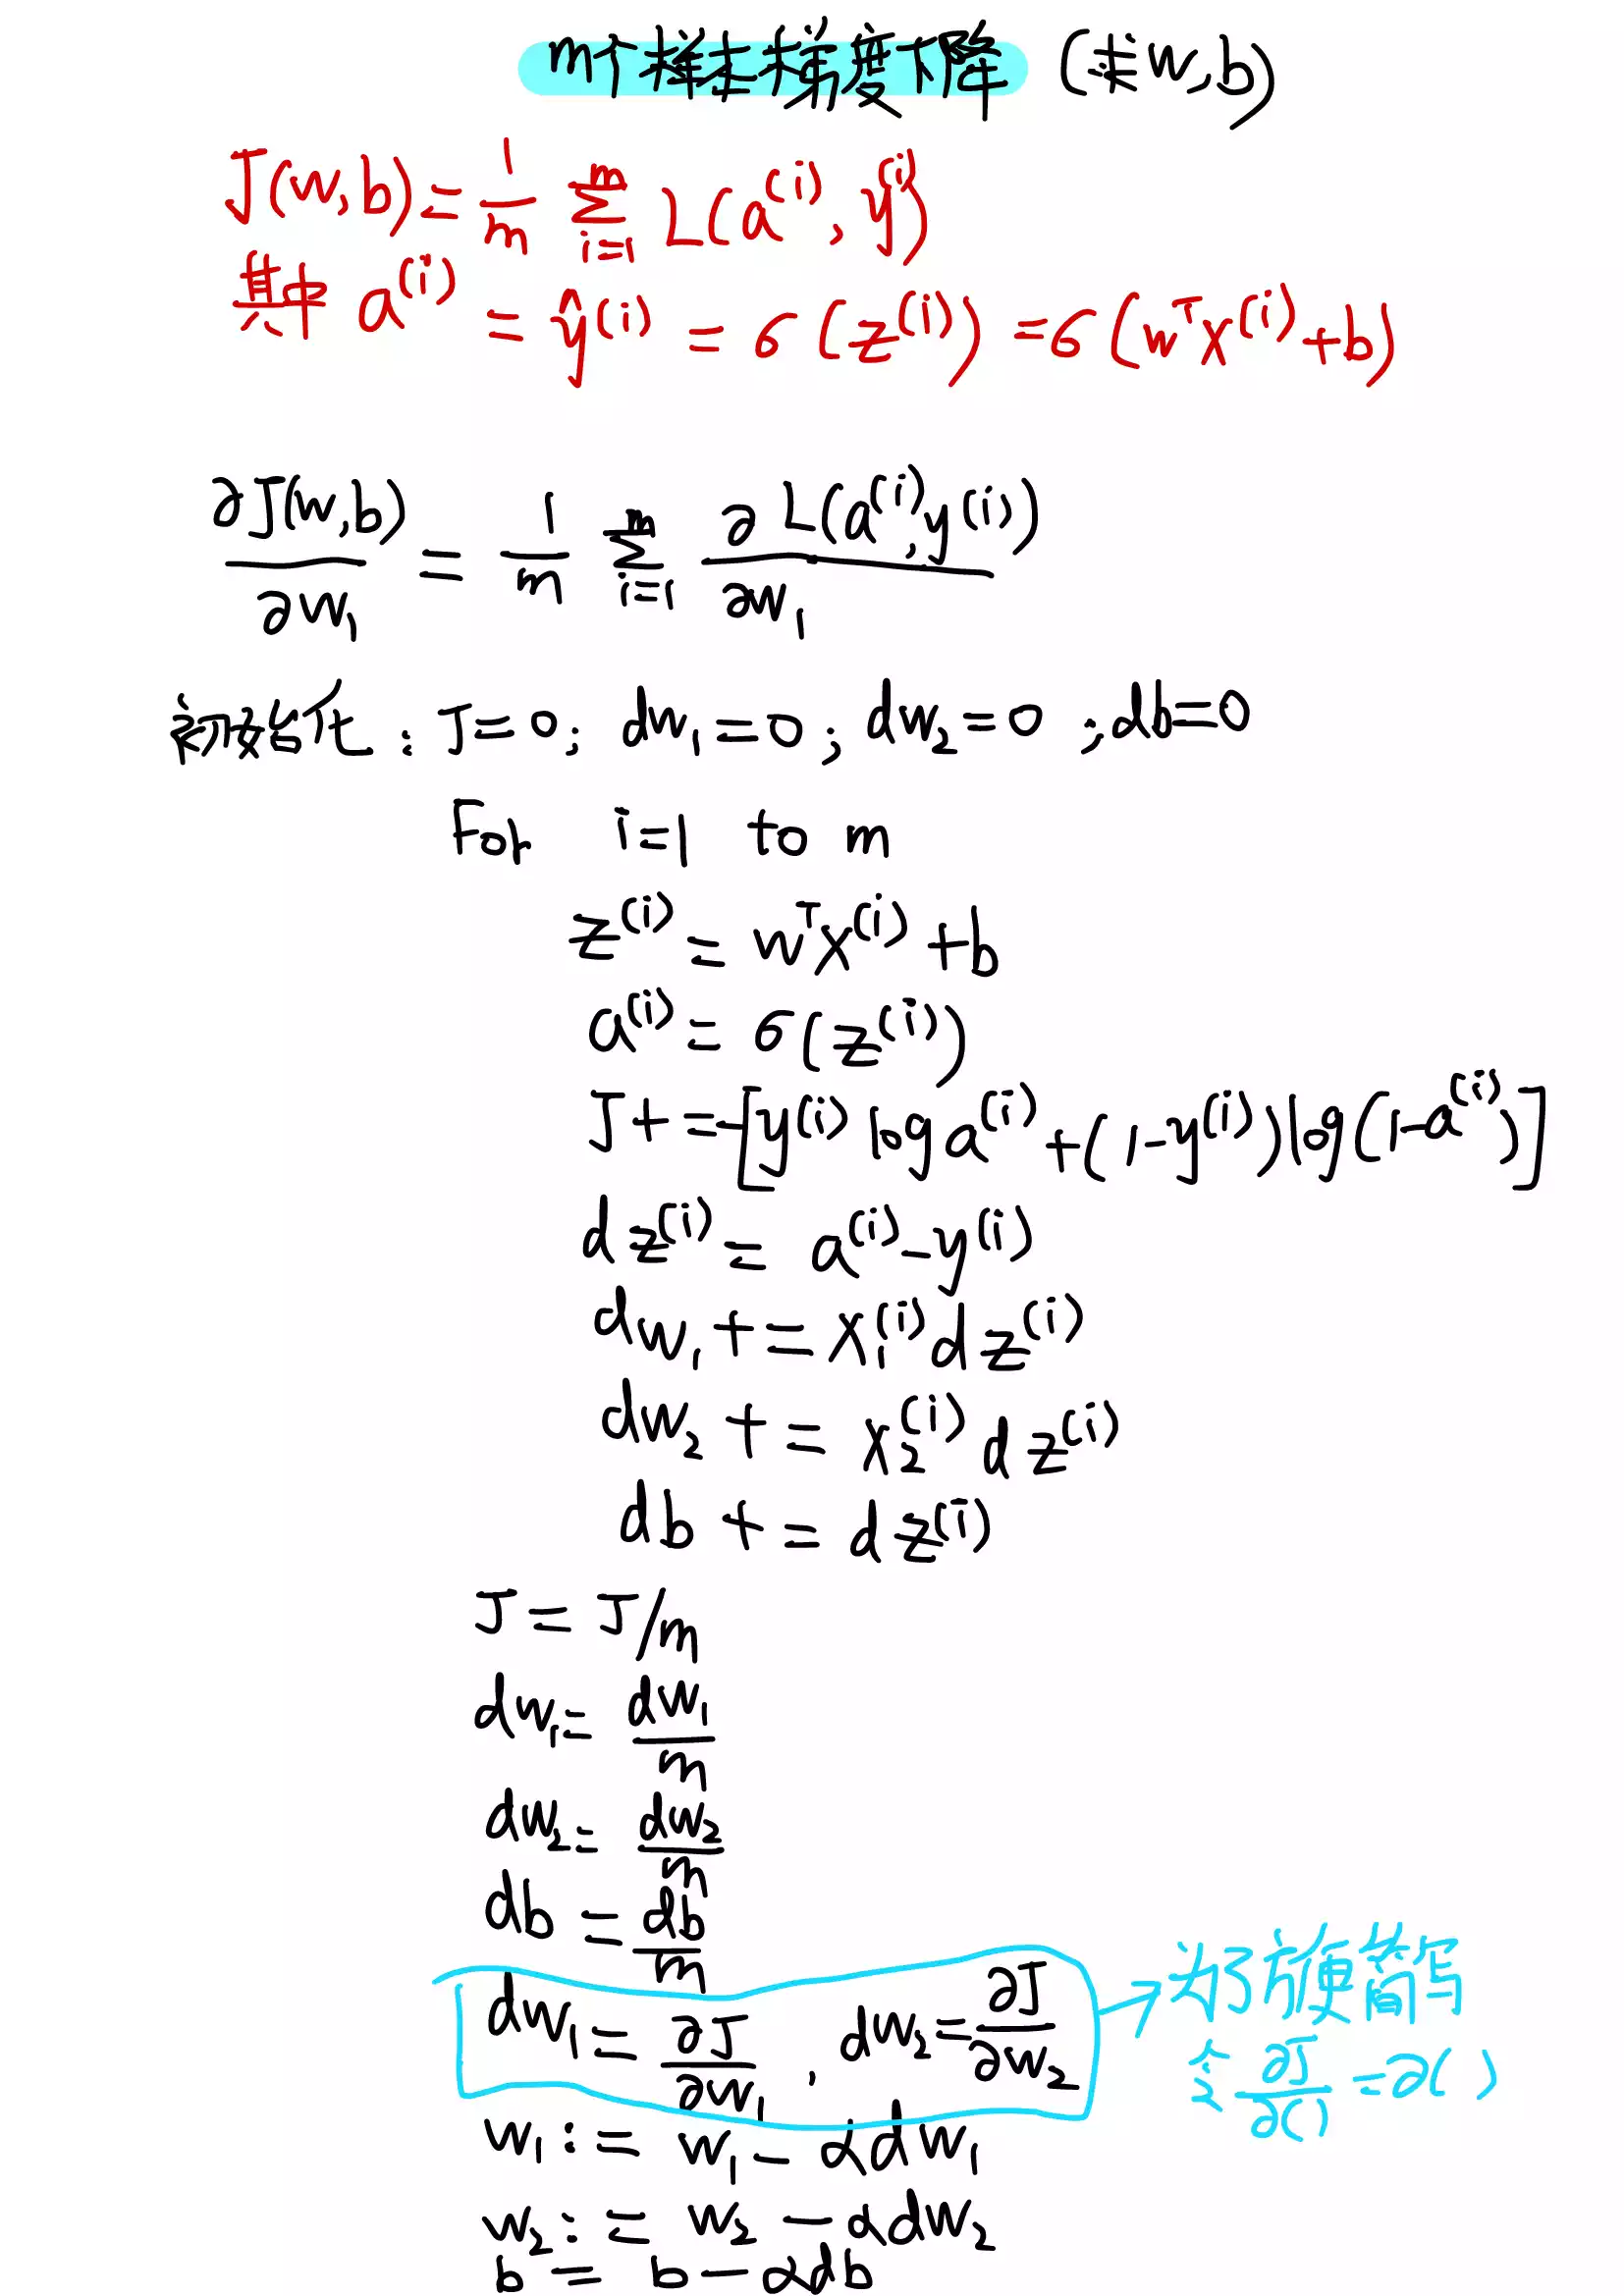 m个样本梯度下降 (求w,b)
J(w,b)=1/m Σ_{i=1}^{m} L(a^(i), y^(i))
其中 a^(i) = ŷ^(i) = σ(z^(i)) = σ(w^T x^(i)+b)
∂J(w,b)/∂w₁ = 1/m Σ_{i=1}^{m} ∂L(a^(i),y^(i))/∂w₁
初始化: J=0; dw₁=0; dw₂=0; db=0
For i=1 to m
z^(i) = w^T x^(i) + b
a^(i) = σ(z^(i))
J += -[y^(i) log a^(i) + (1-y^(i)) log(1-a^(i))]
dz^(i) = a^(i) - y^(i)
dw₁ += x₁^(i) dz^(i)
dw₂ += x₂^(i) dz^(i)
db += dz^(i)
J = J/m
dw₁ = dw₁/m
dw₂ = dw₂/m
db = db/m
dw₁ = ∂J/∂w₁, dw₂ = ∂J/∂w₂
为了方便简写
令 ∂J/∂() = ∂()
w₁ := w₁ - αdw₁
w₂ := w₂ - αdw₂
b = b - αdb